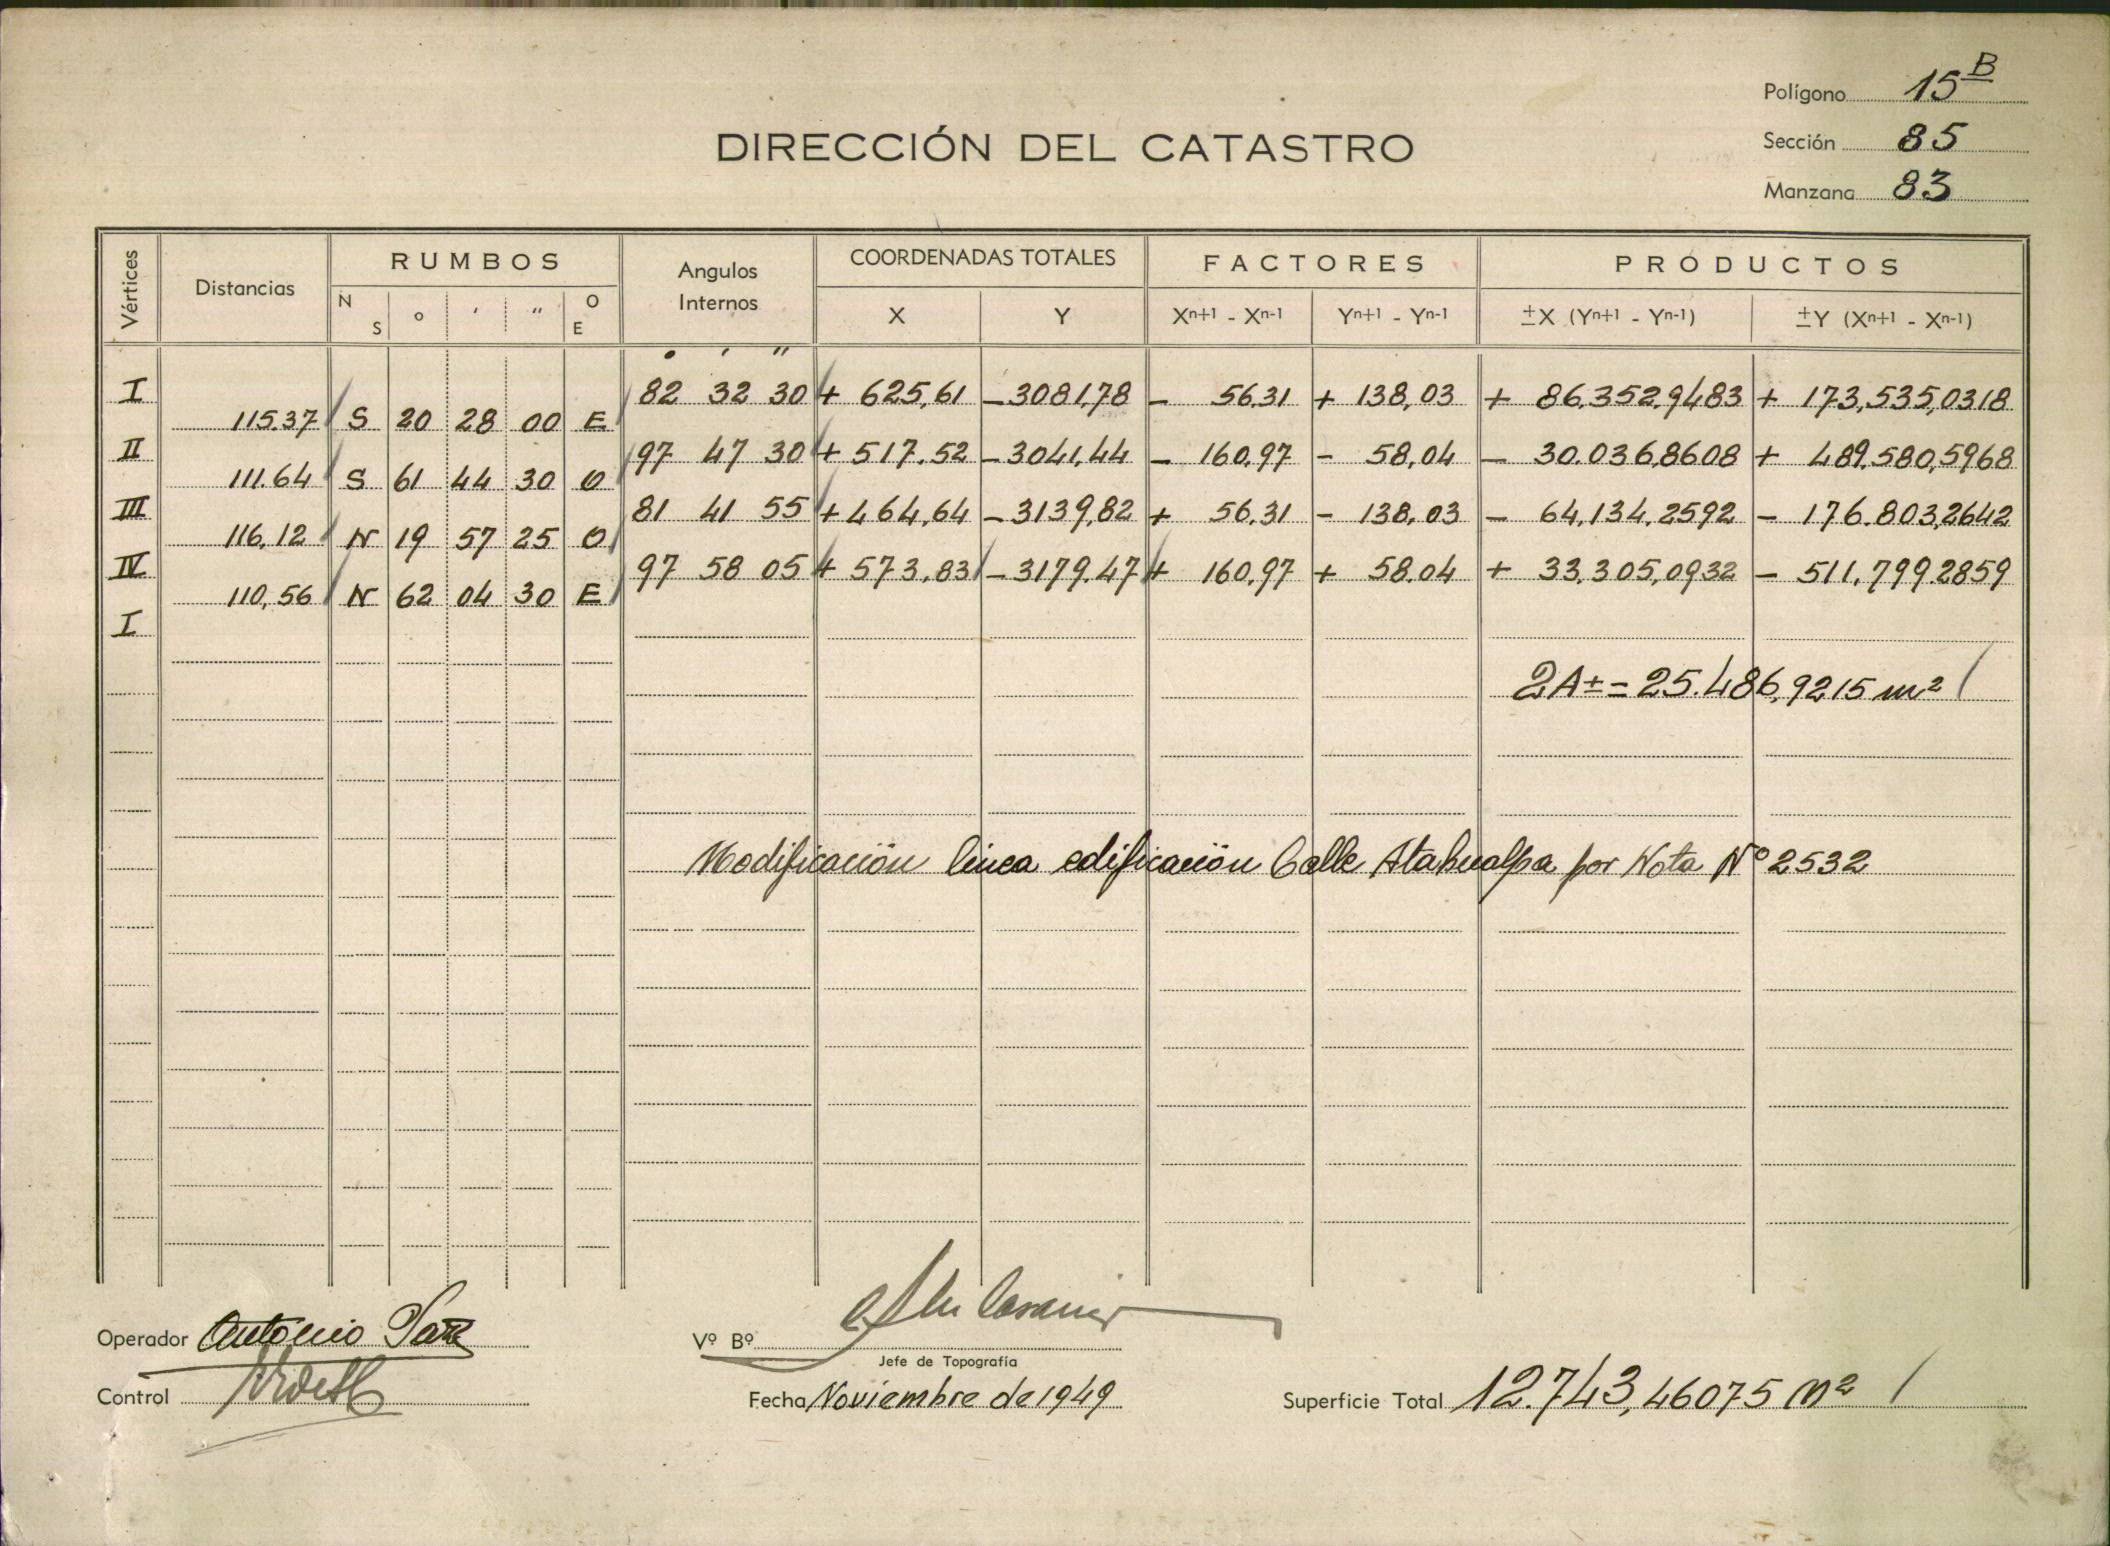 Polígono 15 B
Sección 85
Manzana 83
DIRECCIÓN DEL CATASTRO
Vértices Distancias RUMBOS Angulos Internos COORDENADAS TOTALES FACTORES PRODUCTOS
N S o ' " O E X Y Xn+1 - Xn-1 Yn+1 - Yn-1 ±X (Yn+1 - Yn-1) ±Y (Xn+1 - Xn-1)
° ' "
I 82 32 30 + 625,61 -3081,78 - 56.31 + 138,03 + 86.352,9483 + 173,535,0318
115.37 S 20 28 00 E
II 97 47 30 + 517.52 -3041,44 - 160,97 - 58,04 - 30.036,8608 + 489.580,5968
111.64 S 61 44 30 O
III 81 41 55 + 464,64 -3139,82 + 56.31 - 138,03 - 64,134,2592 - 176.803,2642
116,12 N 19 57 25 O
IV 97 58 05 + 573,83 -3179.47 + 160,97 + 58.04 + 33,305,0932 - 511,799,2859
110,56 N 62 04 30 E
I
2A± = 25.486,9215 m2
Modificación linea edificación Calle Atahualpa por Nota Nº 2532
Operador Antonio
Vº Bº
Jefe de Topografía
Control
Fecha Noviembre de 1949
Superficie Total 12.743,46075 m2